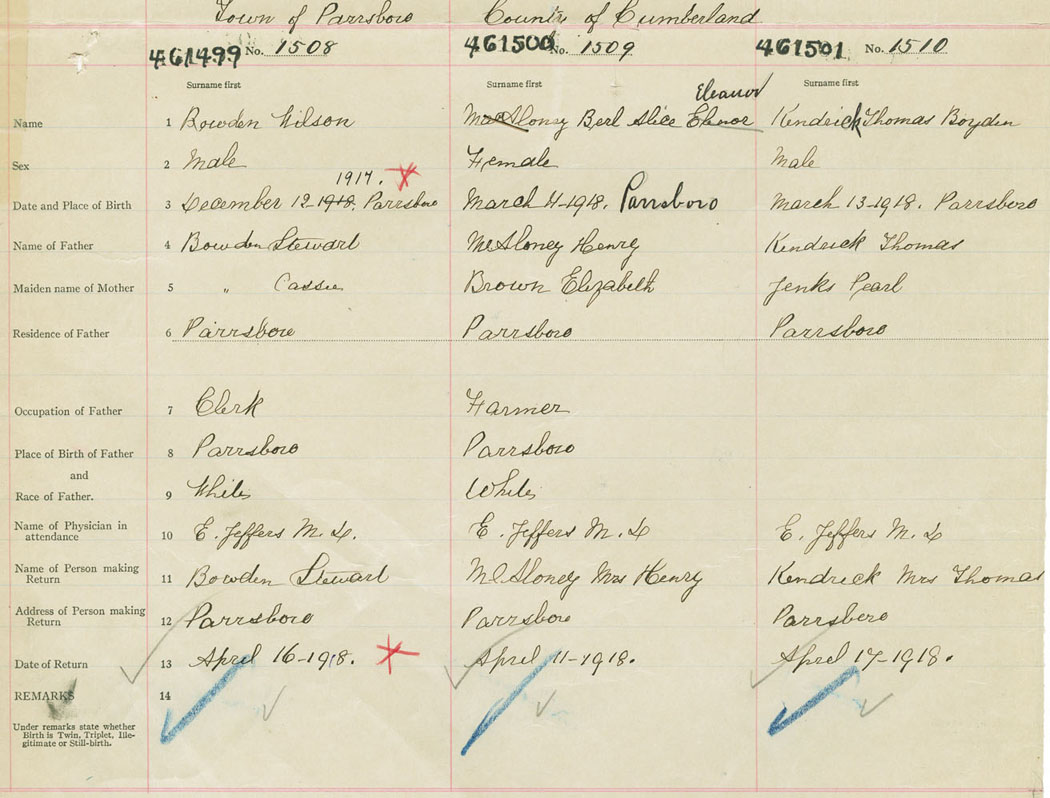 Town of Parrsboro County of Cumberland
461499 No. 1508 461500 No. 1509 461501 No. 1510
Surname first Surname first Surname first
Eleanor
Name 1 Bowden Wilson MacAloney Berl Alice Elenor Kendrick Thomas Boyden
Sex 2 Male Female Male
1917.
Date and Place of Birth 3 December 12-1918. Parrsboro March 4-1918. Parrsboro March 13-1918. Parrsboro
Name of Father 4 Bowden Stewart McAloney Henry Kendrick Thomas
Maiden name of Mother 5 " Cassie Brown Elizabeth Jenks Pearl
Residence of Father 6 Parrsboro Parrsboro Parrsboro
Occupation of Father 7 Clerk Farmer
Place of Birth of Father 8 Parrsboro Parrsboro
and
Race of Father. 9 White White
Name of Physician in
attendance 10 E. Jeffers M. D. E. Jeffers M. D E. Jeffers M. D
Name of Person making
Return 11 Bowden Stewart McAloney Mrs Henry Kendrick Mrs Thomas
Address of Person making
Return 12 Parrsboro Parrsboro Parrsboro
Date of Return 13 April 16-1918. April 11-1918. April 17-1918.
REMARKS 14
Under remarks state whether
Birth is Twin, Triplet, Ille-
gitimate or Still-birth.